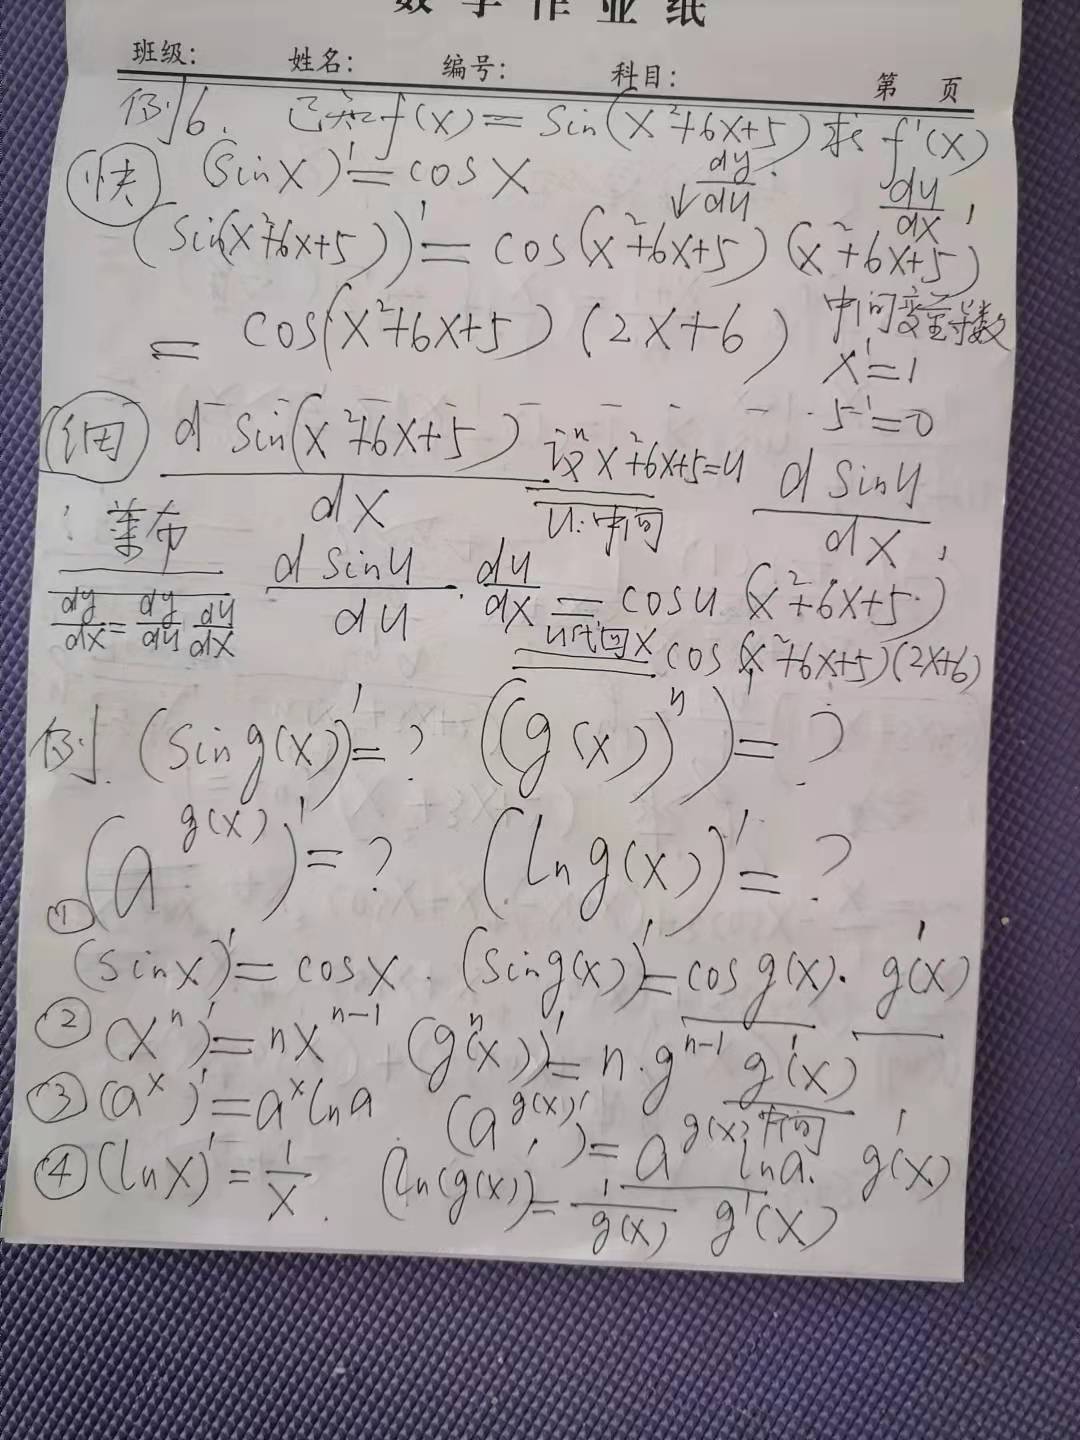 数学作业纸
班级: 姓名: 编号: 科目: 第 页
例6. 已知f(x)=sin(x²+6x+5) 求 f'(x)
快 (sinx)'=cosx dy/du du/dx
(sin(x²+6x+5))'=cos(x²+6x+5)(x²+6x+5)'
=cos(x²+6x+5)(2x+6) 中间变量导数
x'=1
5'=0
细 d sin(x²+6x+5)/dx 设x²+6x+5=u d sinu/dx
u:中间
莱布
dy/dx=dy/du du/dx d sinu/du · du/dx = cosu (x²+6x+5)'
u代回x cos(x²+6x+5)(2x+6)
例. (sin g(x))'=? ((g(x))ⁿ)'=?
(a^g(x))'=? (ln g(x))'=?
① (sinx)'=cosx. (sin g(x))'=cos g(x)· g'(x)
② (xⁿ)'=nxⁿ⁻¹ (gⁿ(x))'=n·gⁿ⁻¹ g'(x)
中间
③ (aˣ)'=aˣlna (a^g(x))'=a^g(x) lna. g'(x)
④ (lnx)'=1/x. (ln(g(x))'=1/g(x) g'(x)